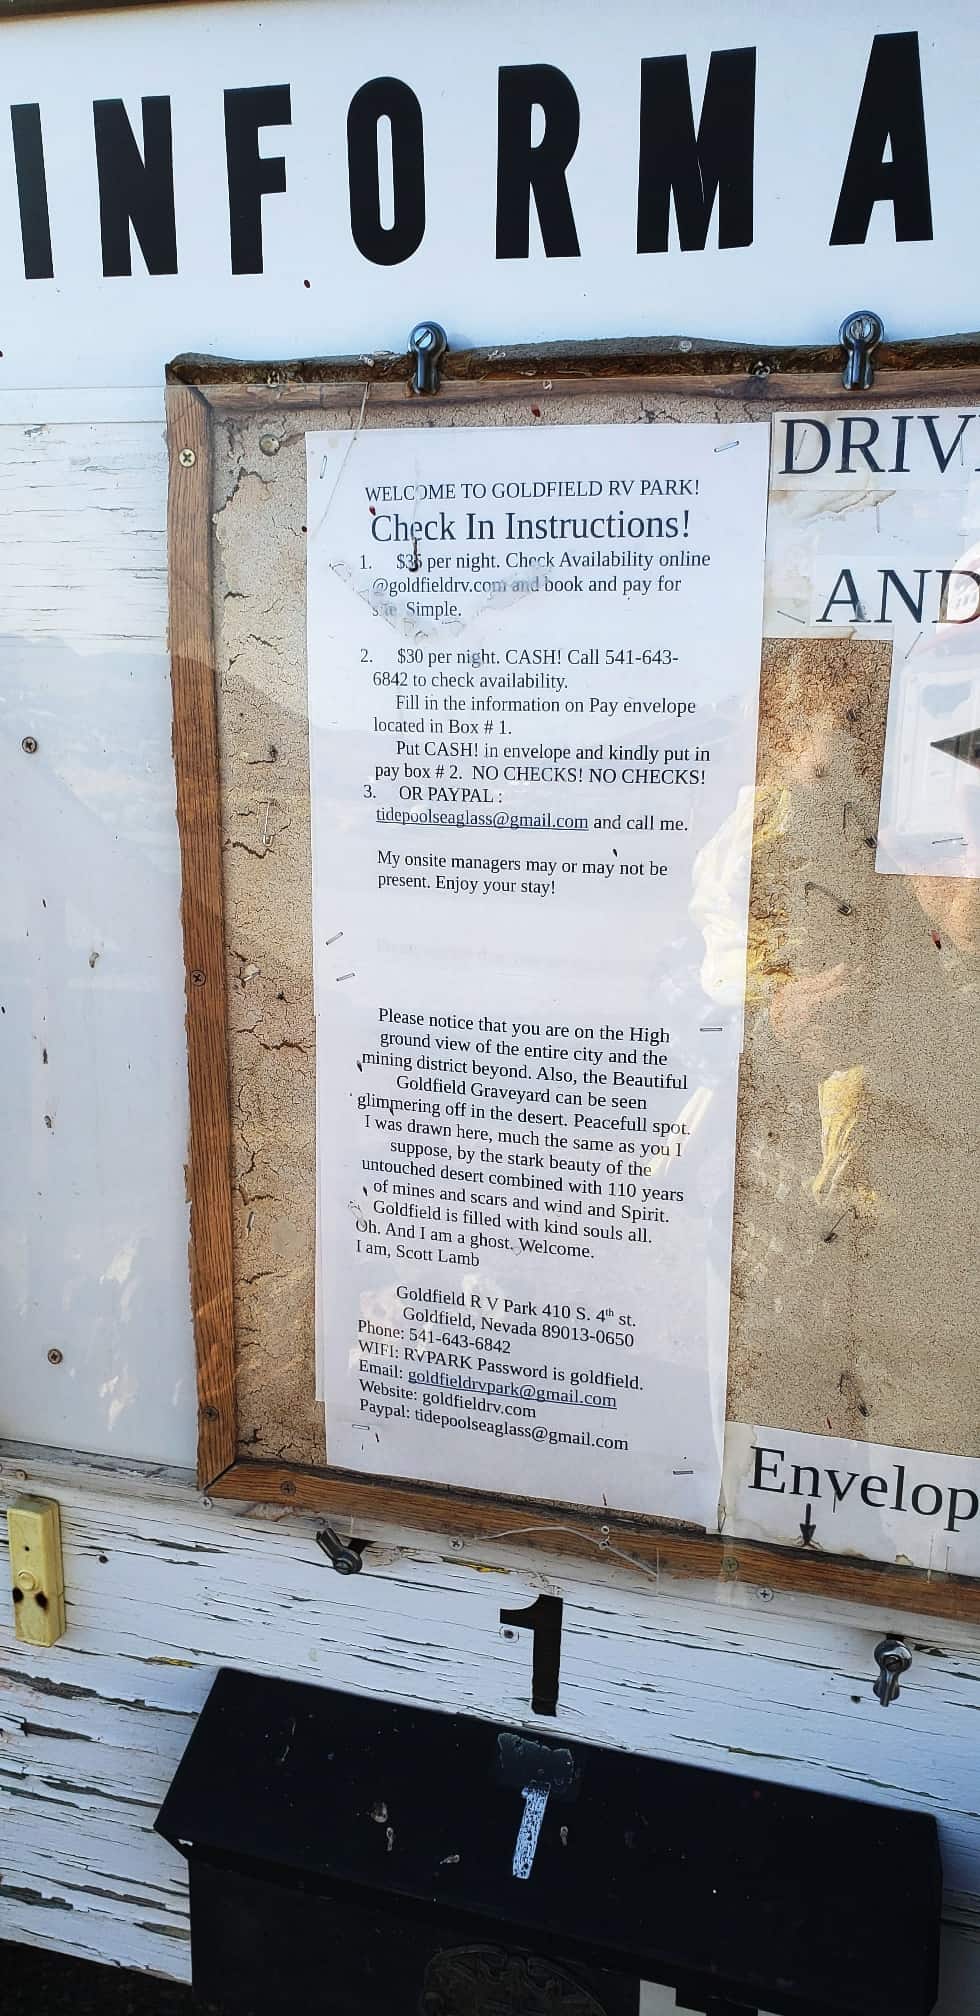 INFORMA
WELCOME TO GOLDFIELD RV PARK!
Check In Instructions!
1. $35 per night. Check Availability online
@goldfieldrv.com and book and pay for
site Simple.
2. $30 per night. CASH! Call 541-643-
6842 to check availability.
Fill in the information on Pay envelope
located in Box # 1.
Put CASH! in envelope and kindly put in
pay box # 2. NO CHECKS! NO CHECKS!
3. OR PAYPAL :
tidepoolseaglass@gmail.com and call me.
My onsite managers may or may not be
present. Enjoy your stay!
Please notice that you are on the High
ground view of the entire city and the
mining district beyond. Also, the Beautiful
Goldfield Graveyard can be seen
glimmering off in the desert. Peacefull spot.
I was drawn here, much the same as you I
suppose, by the stark beauty of the
untouched desert combined with 110 years
of mines and scars and wind and Spirit.
Goldfield is filled with kind souls all.
Oh. And I am a ghost. Welcome.
I am, Scott Lamb
Goldfield R V Park 410 S. 4th st.
Goldfield, Nevada 89013-0650
Phone: 541-643-6842
WIFI: RVPARK Password is goldfield.
Email: goldfieldrvpark@gmail.com
Website: goldfieldrv.com
Paypal: tidepoolseaglass@gmail.com
DRIV
AND
Envelop
1
1